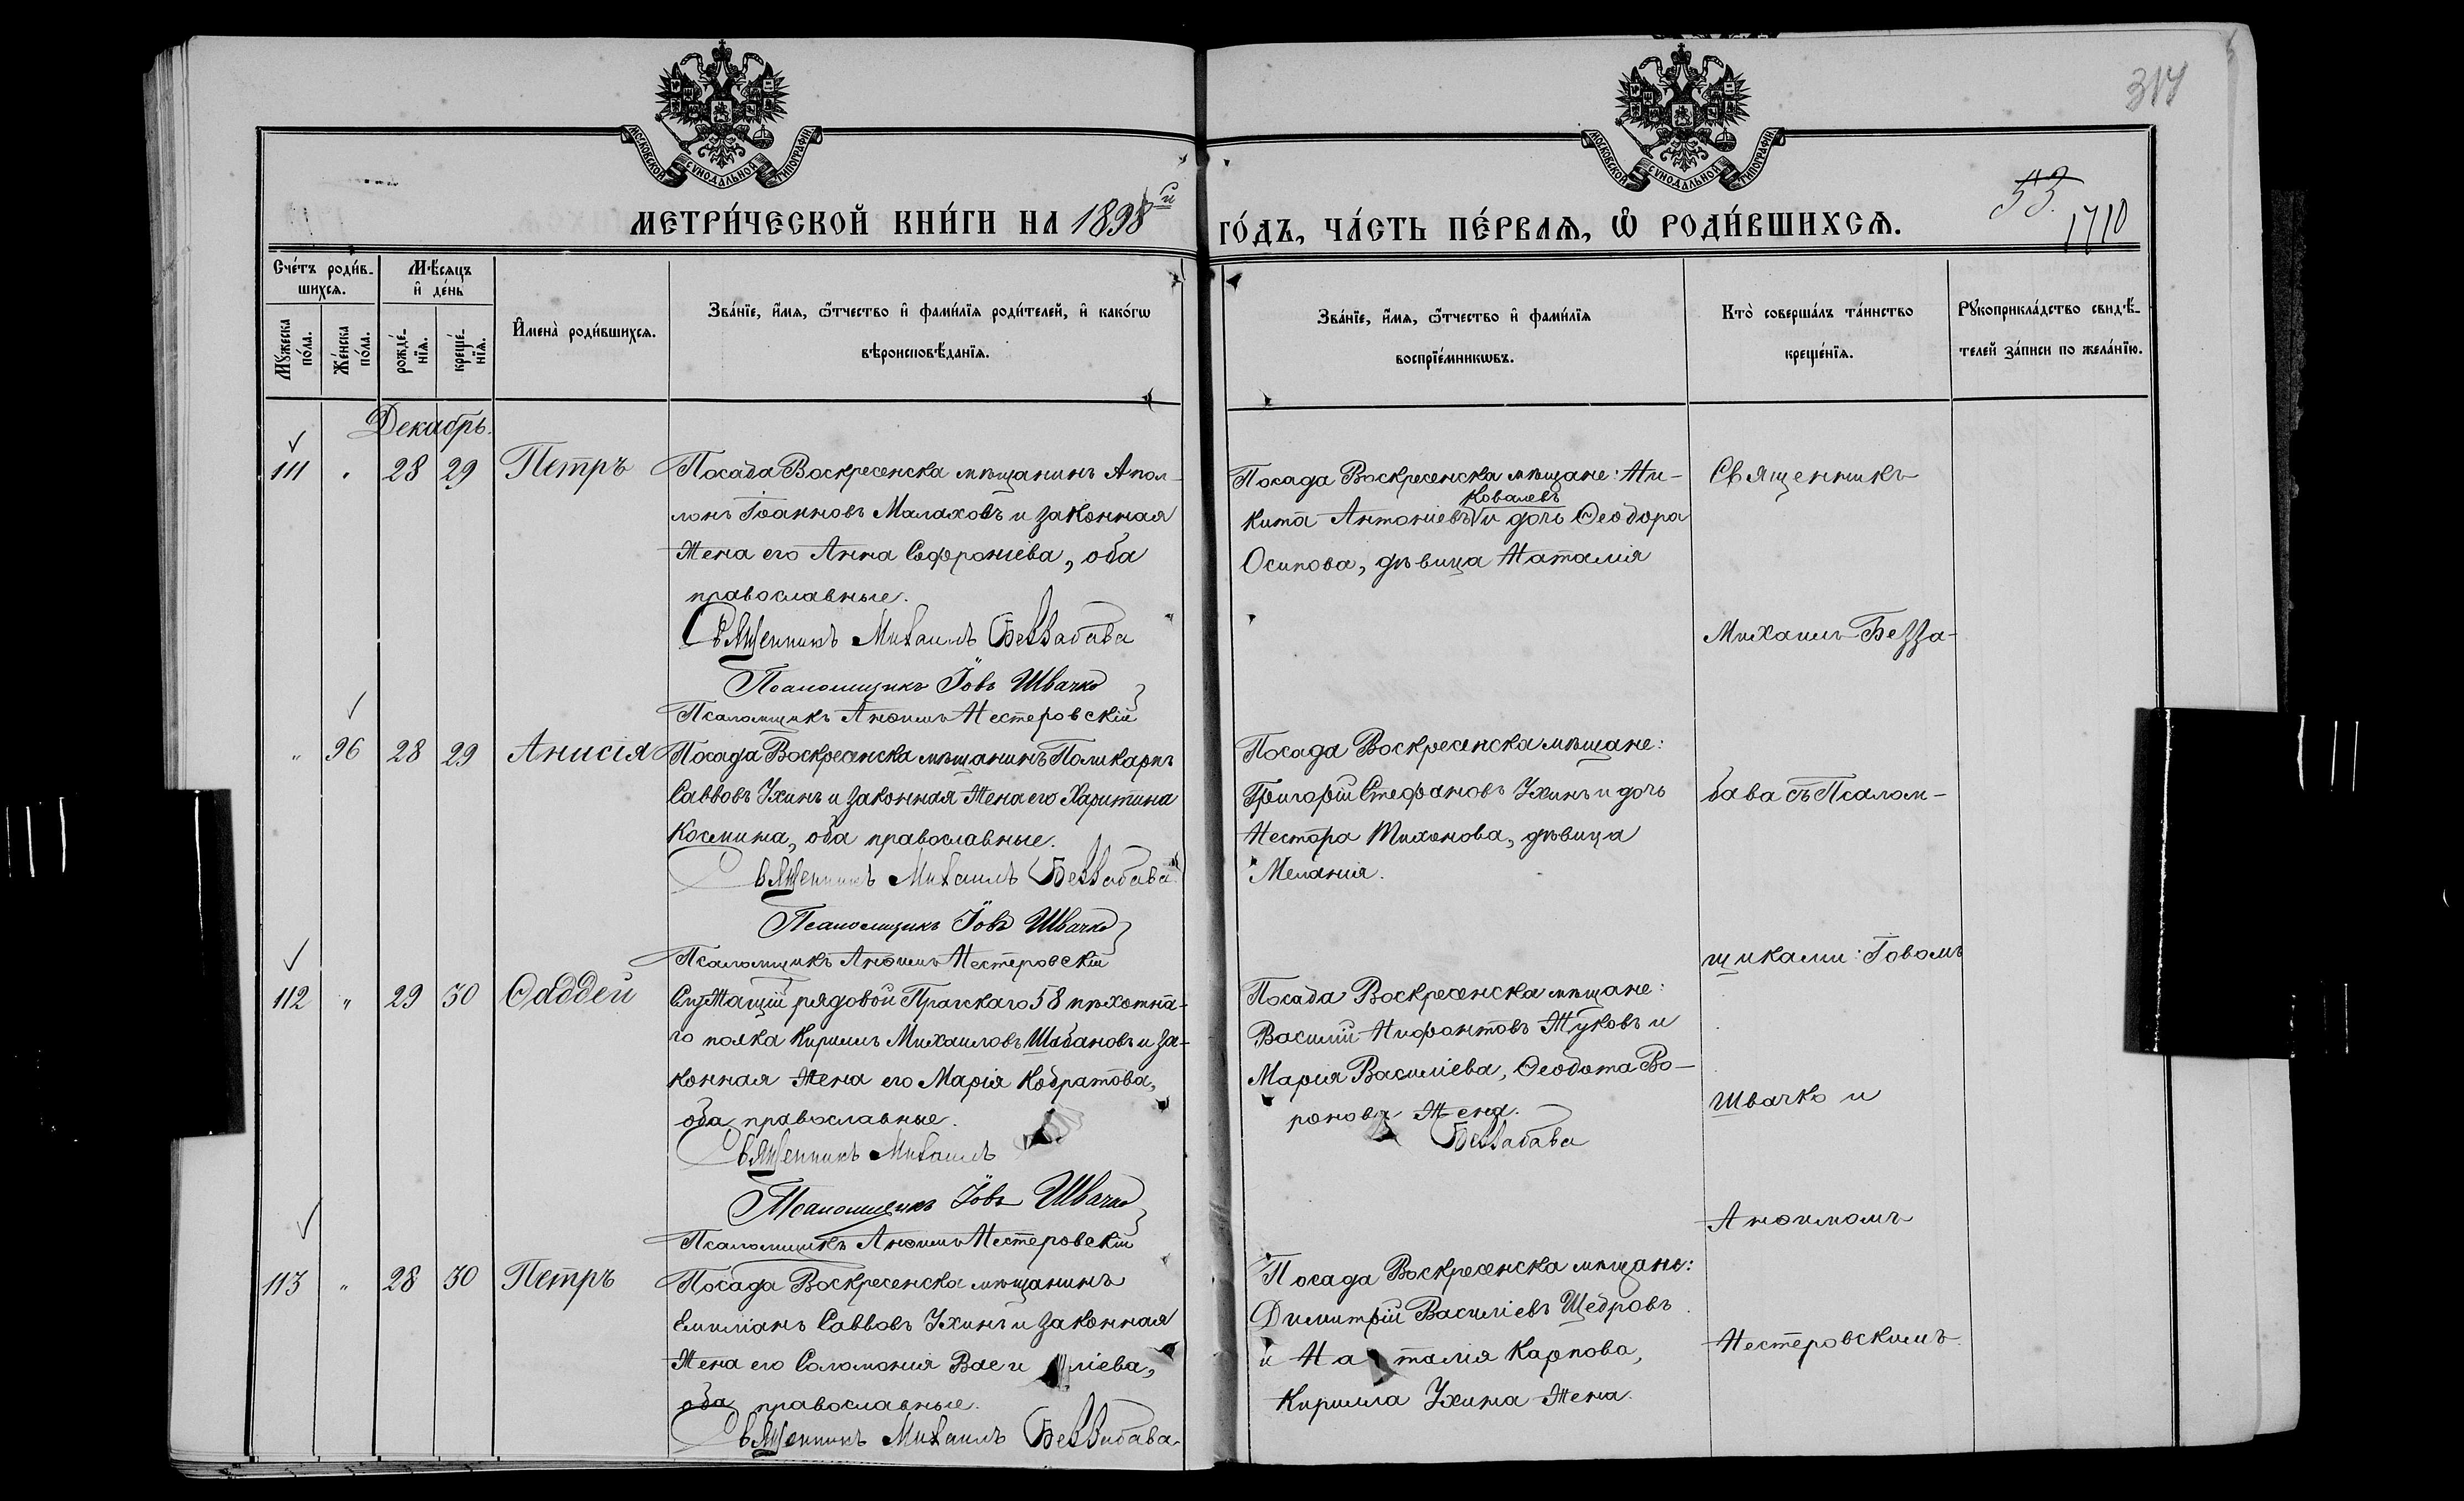 314
МОСКОВСКОЙ СѴНОДАЛЬНОЙ ТИПОГРАФІИ
МОСКОВСКОЙ СѴНОДАЛЬНОЙ ТИПОГРАФІИ
53.
1710
МЕТРИ́ЧЕСКОЙ КНИ́ГИ НА 1898й
ГО́ДЪ, ЧА́СТЬ ПЕ́РВАѦ, Ѽ РОДИ́ВШИХСѦ.
Сче́тъ роди́в-
шихсѧ.
Мꙋжеска по́ла.
Же́нска по́ла.
Мѣ́сѧцъ и҆ де́нь
рожде́-нїѧ.
креще́-нїѧ.
И҆мена̀ роди́вшихсѧ.
Зва́нїе, и҆́мѧ, ѻ҆́тчество и҆ фами́лїѧ роди́телей, и҆ како́гѡ
вѣроисповѣ́данїѧ.
Зва́нїе, и҆́мѧ, ѻ҆́тчество и҆ фами́лїѧ
воспрїе́мникѡвъ.
Кто̀ соверша́лъ та́инство
креще́нїѧ.
Рꙋкоприкла́дство свидѣ́-
телей за́писи по жела́нїю.
Декабрь.
111 " 28 29 Петръ
Посада Воскресенска мѣщанинъ Апол-
лонъ Іоанновъ Малаховъ и законная
жена его Анна Софроніева, оба
православные.
Священникъ Михаилъ Беззабава
Псаломщикъ Іовъ Швачко
Псаломщикъ Анѳимъ Нестеровскій
Посада Воскресенска мѣщане: Ни-
Ковалевъ
кита Антоніевъ и дочь Ѳеодора
Осипова, дѣвица Наталія
Священникъ
Михаилъ Безза-
" 96 28 29 Анисія
Посада Воскресенска мѣщанинъ Поликарпъ
Саввовъ Ухинъ и законная жена его Харитина
Космина, оба православные.
Священникъ Михаилъ Беззабава
Псаломщикъ Іовъ Швачко
Псаломщикъ Анѳимъ Нестеровскій
Посада Воскресенска мѣщане:
Григорій Стефановъ Ухинъ и дочь
Нестора Тихонова, дѣвица
Меланія.
бава съ Псалом-
щиками: Іовомъ
112 " 29 30 Ѳаддей
Служащій рядовой Прагскаго 58 пѣхотна-
го полка Кириллъ Михаиловъ Шабановъ и за-
конная жена его Марія Кодратова,
оба православные.
Священникъ Михаилъ
Псаломщикъ Іовъ Швачко
Псаломщикъ Анѳимъ Нестеровскій
Посада Воскресенска мѣщане:
Василій Нифонтовъ Жуковъ и
Марія Василіева, Ѳеодота Во-
ронова жена.
Беззабава
Швачко и
Анѳимомъ
113 " 28 30 Петръ
Посада Воскресенска мѣщанинъ
Емиліанъ Саввовъ Ухинъ и законная
жена его Соломонія Васи ліева,
оба православные.
Священникъ Михаилъ Беззабава
Посада Воскресенска мѣщане:
Димитрій Василіевъ Щедровъ
и На талія Карпова,
Кирилла Ухина жена.
Нестеровскимъ